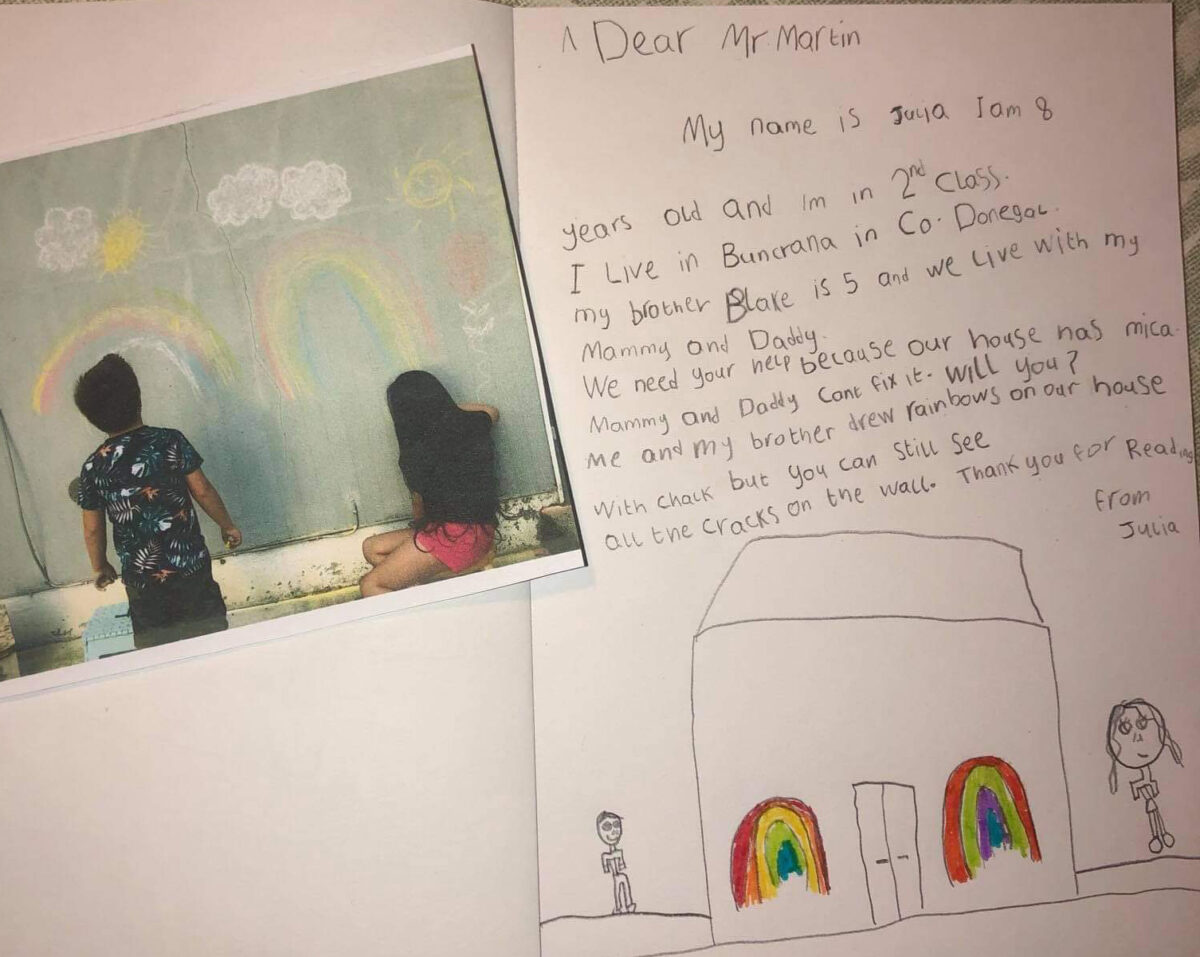 Dear Mr Martin
My name is Julia I am 8
years old and Im in 2nd Class.
I Live in Buncrana in Co. Donegal.
my brother Blake is 5 and we Live with my
Mammy and Daddy.
We need your help because our house has mica.
Mammy and Daddy Cant fix it. Will you?
Me and my brother drew rainbows on our house
With chalk but you can still see
all the cracks on the wall. Thank you for Reading
from
Julia